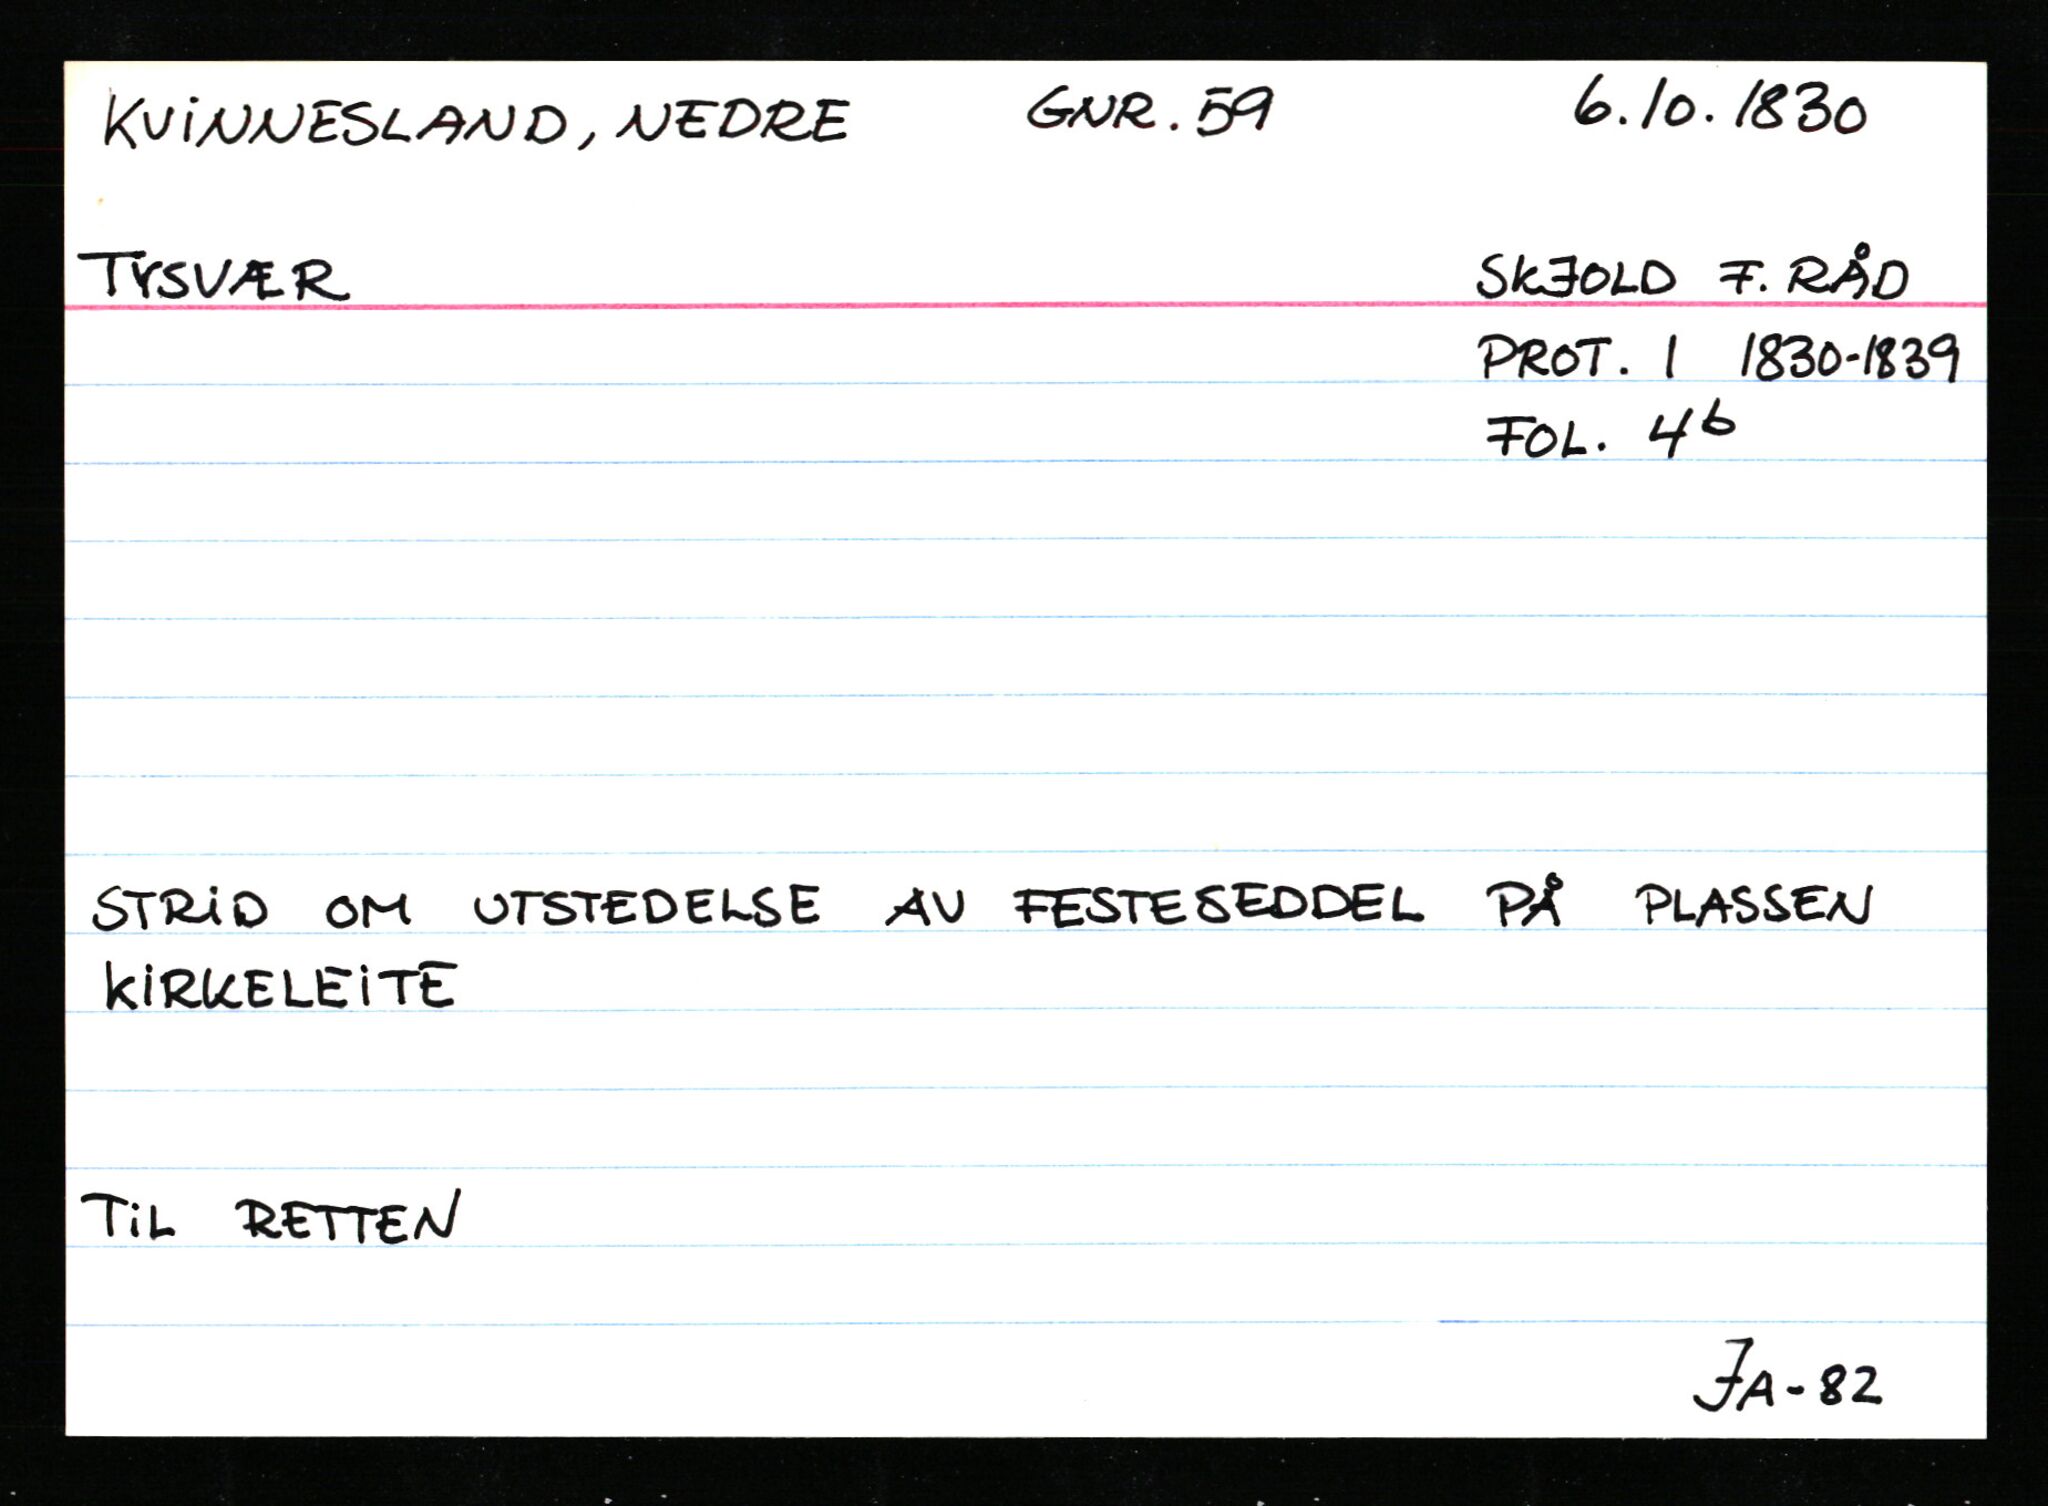 KVINNESLAND, NEDRE GNR. 59 6.10.1830
TYSVÆR SKJOLD F. RÅD
PROT. 1 1830-1839
FOL. 4b
STRID OM UTSTEDELSE AV FESTESEDDEL PÅ PLASSEN
KIRKELEITE
TIL RETTEN
JA-82